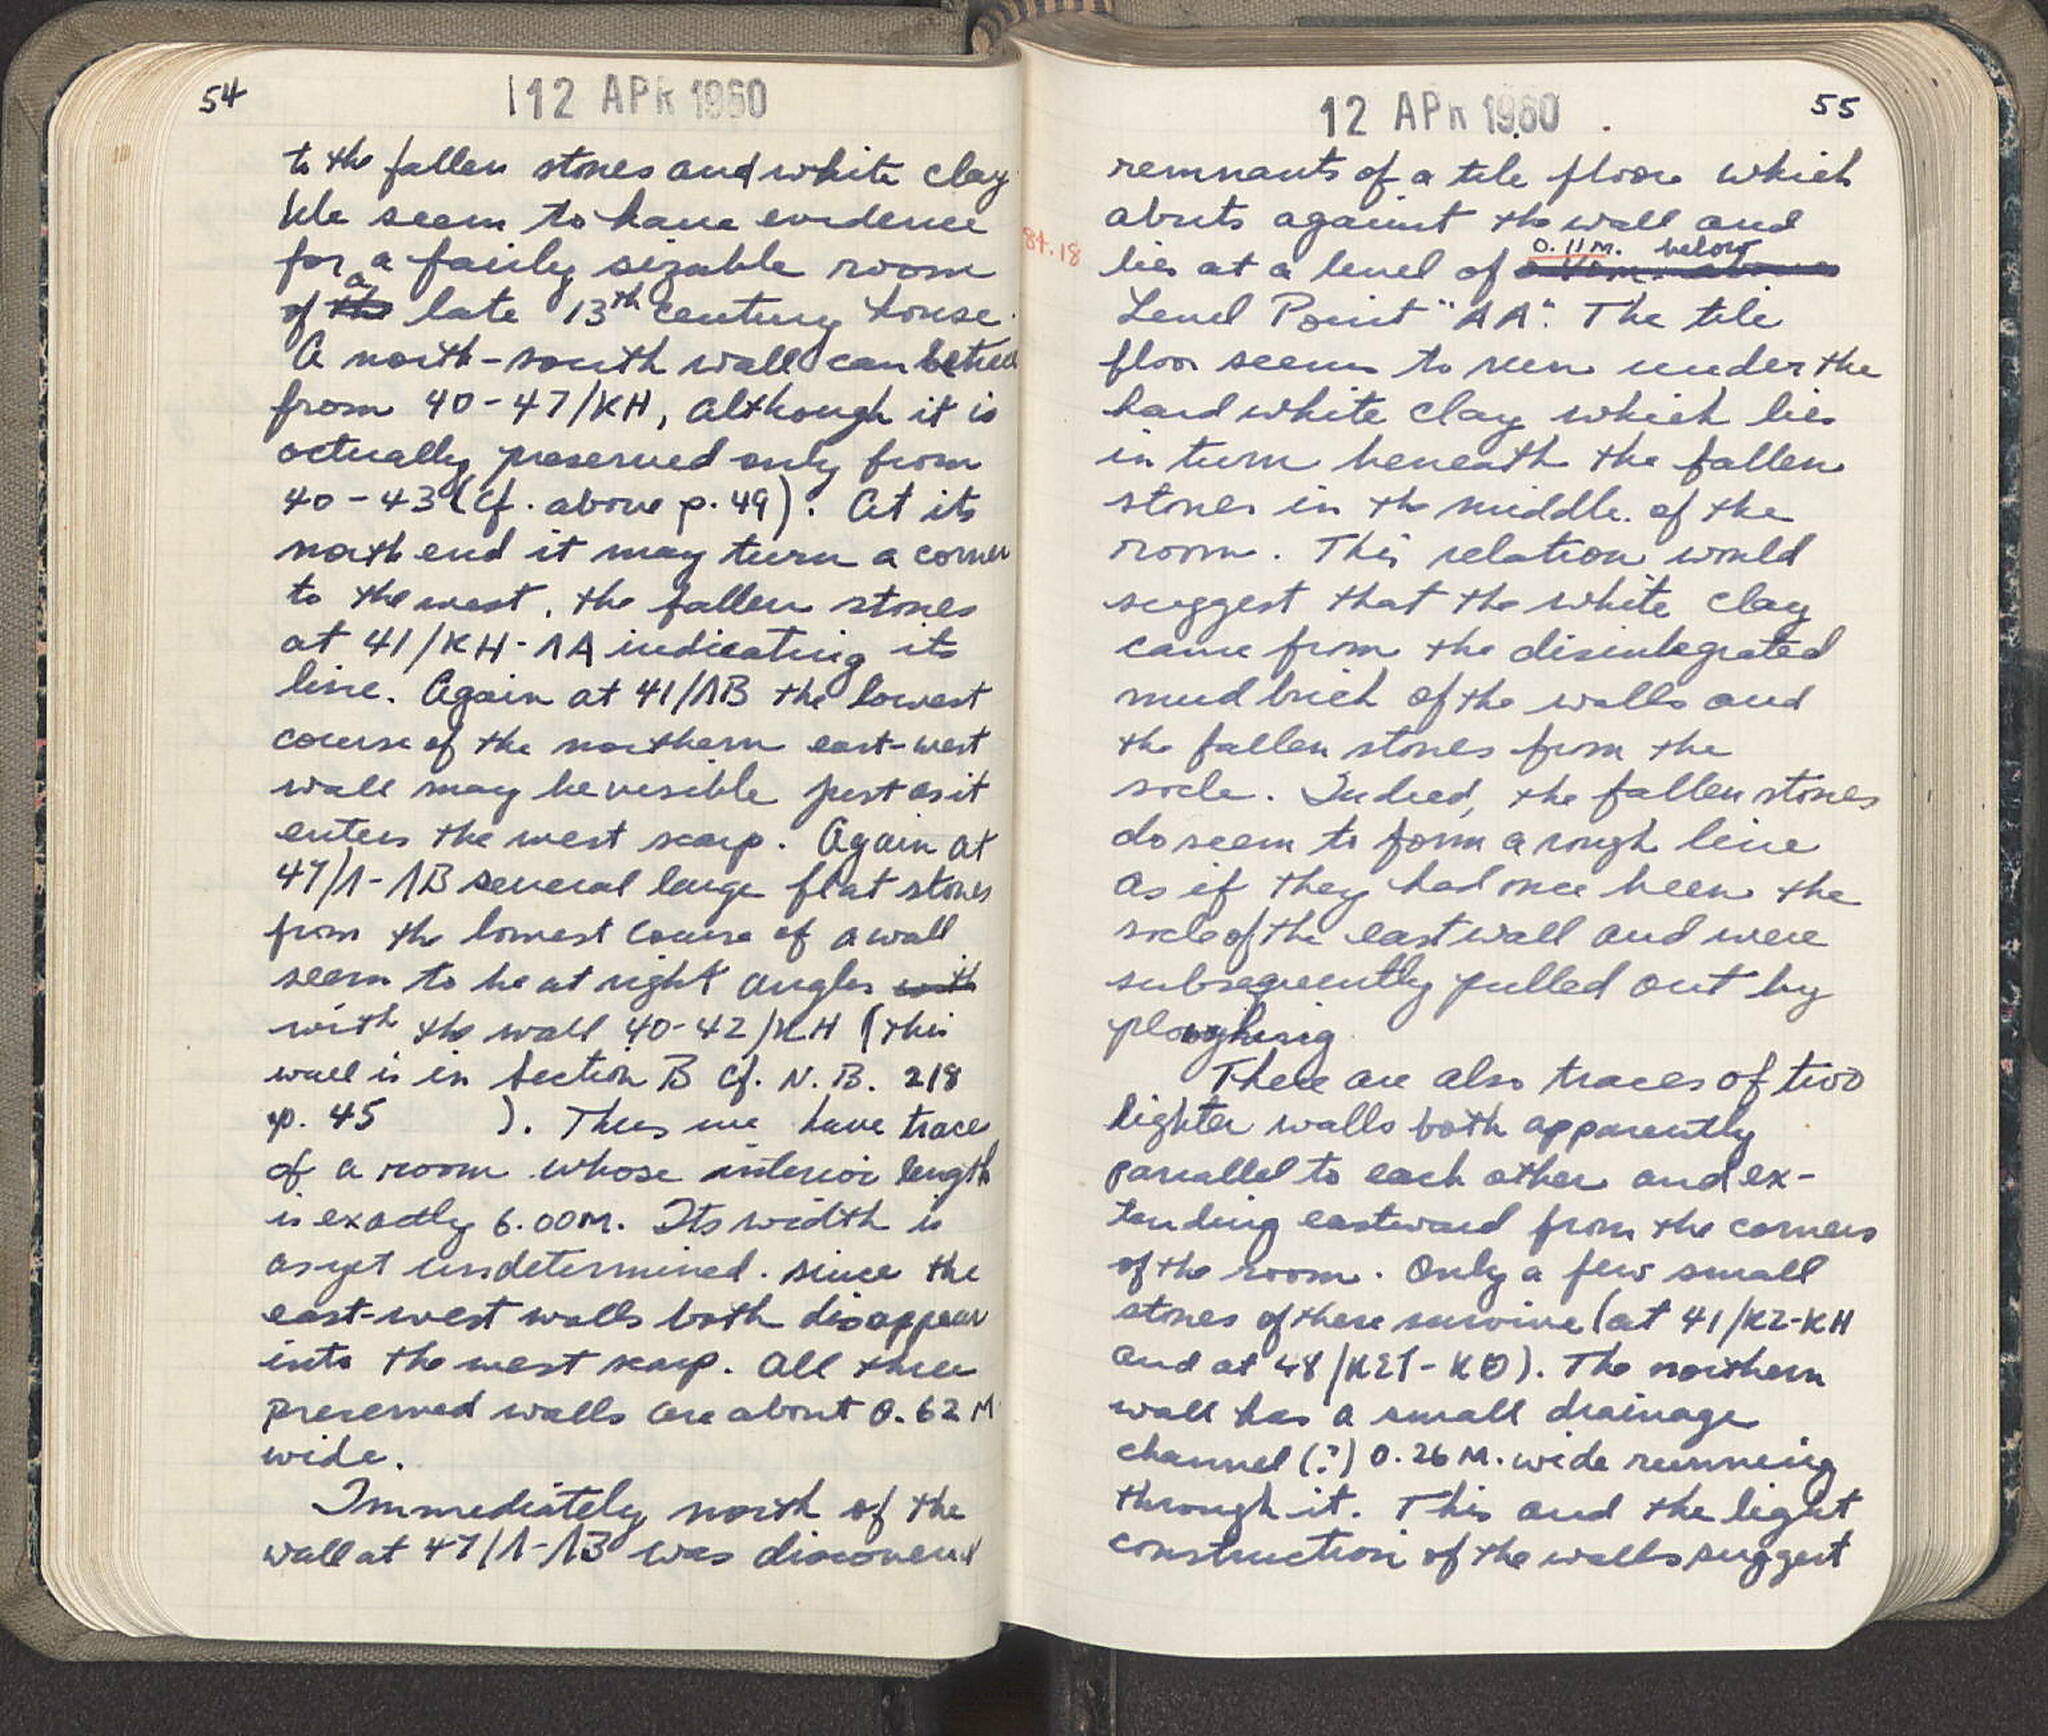 54
12 APR 1960
to the fallen stones and white clay
We seem to have evidence
for a fairly sizable room
of a late 13th century house.
A north-south wall can be traced
from 40-47/KH, although it is
actually preserved only from
40-43 (cf. above p. 49). At its
north end it may turn a corner
to the west, the fallen stones
at 41/KH-ΛA indicating its
line. Again at 41/ΛB the lowest
course of the northern east-west
wall may be visible just as it
enters the west scarp. Again at
47/Λ-ΛB several large flat stones
from the lowest course of a wall
seem to be at right angles with
with the wall 40-42/KH (this
wall is in Section B cf. N.B. 218
p. 45 ). Thus we have trace
of a room whose interior length
is exactly 6.00M. Its width is
as yet undetermined. since the
east-west walls both disappear
into the west scarp. All three
preserved walls are about 0.62 M
wide.
Immediately north of the
wall at 47/Λ-ΛB was discovered
12 APR 1960
55
remnants of a tile floor which
abuts against the wall and
84.18
0.11M. below
lies at a level of
Level Point "AA". The tile
floor seems to run under the
hard white clay which lies
in turn beneath the fallen
stones in the middle of the
room. This relation would
suggest that the white clay
came from the disintegrated
mud brick of the walls and
the fallen stones from the
socle. Indeed, the fallen stones
do seem to form a rough line
as if they had once been the
socle of the east wall and were
subsequently pulled out by
ploughing
There are also traces of two
lighter walls both apparently
parallel to each other and ex-
tending eastward from the corners
of the room. Only a few small
stones of these survive (at 41/KZ-KH
and at 48/ - KΘ). The northern
wall has a small drainage
channel (?) 0.26 M. wide running
through it. This and the light
construction of the walls suggest